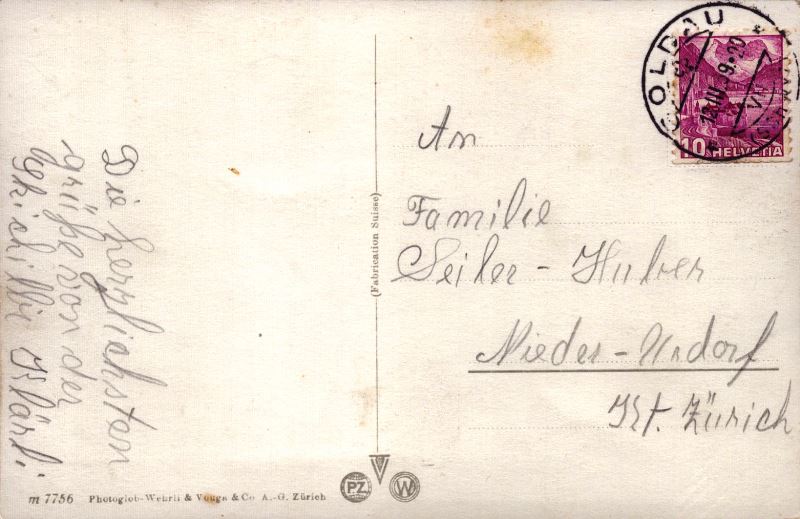 Die herzlichsten
grüße von der
An
Familie
Seiler-Huber
Nieder-Urdorf
Kt. Zürich
(Fabrication Suisse)
GOLDAU
10 HELVETIA
m 7756 Photoglob-Wehrli & Vouga & Co A.-G. Zürich
PZ
W